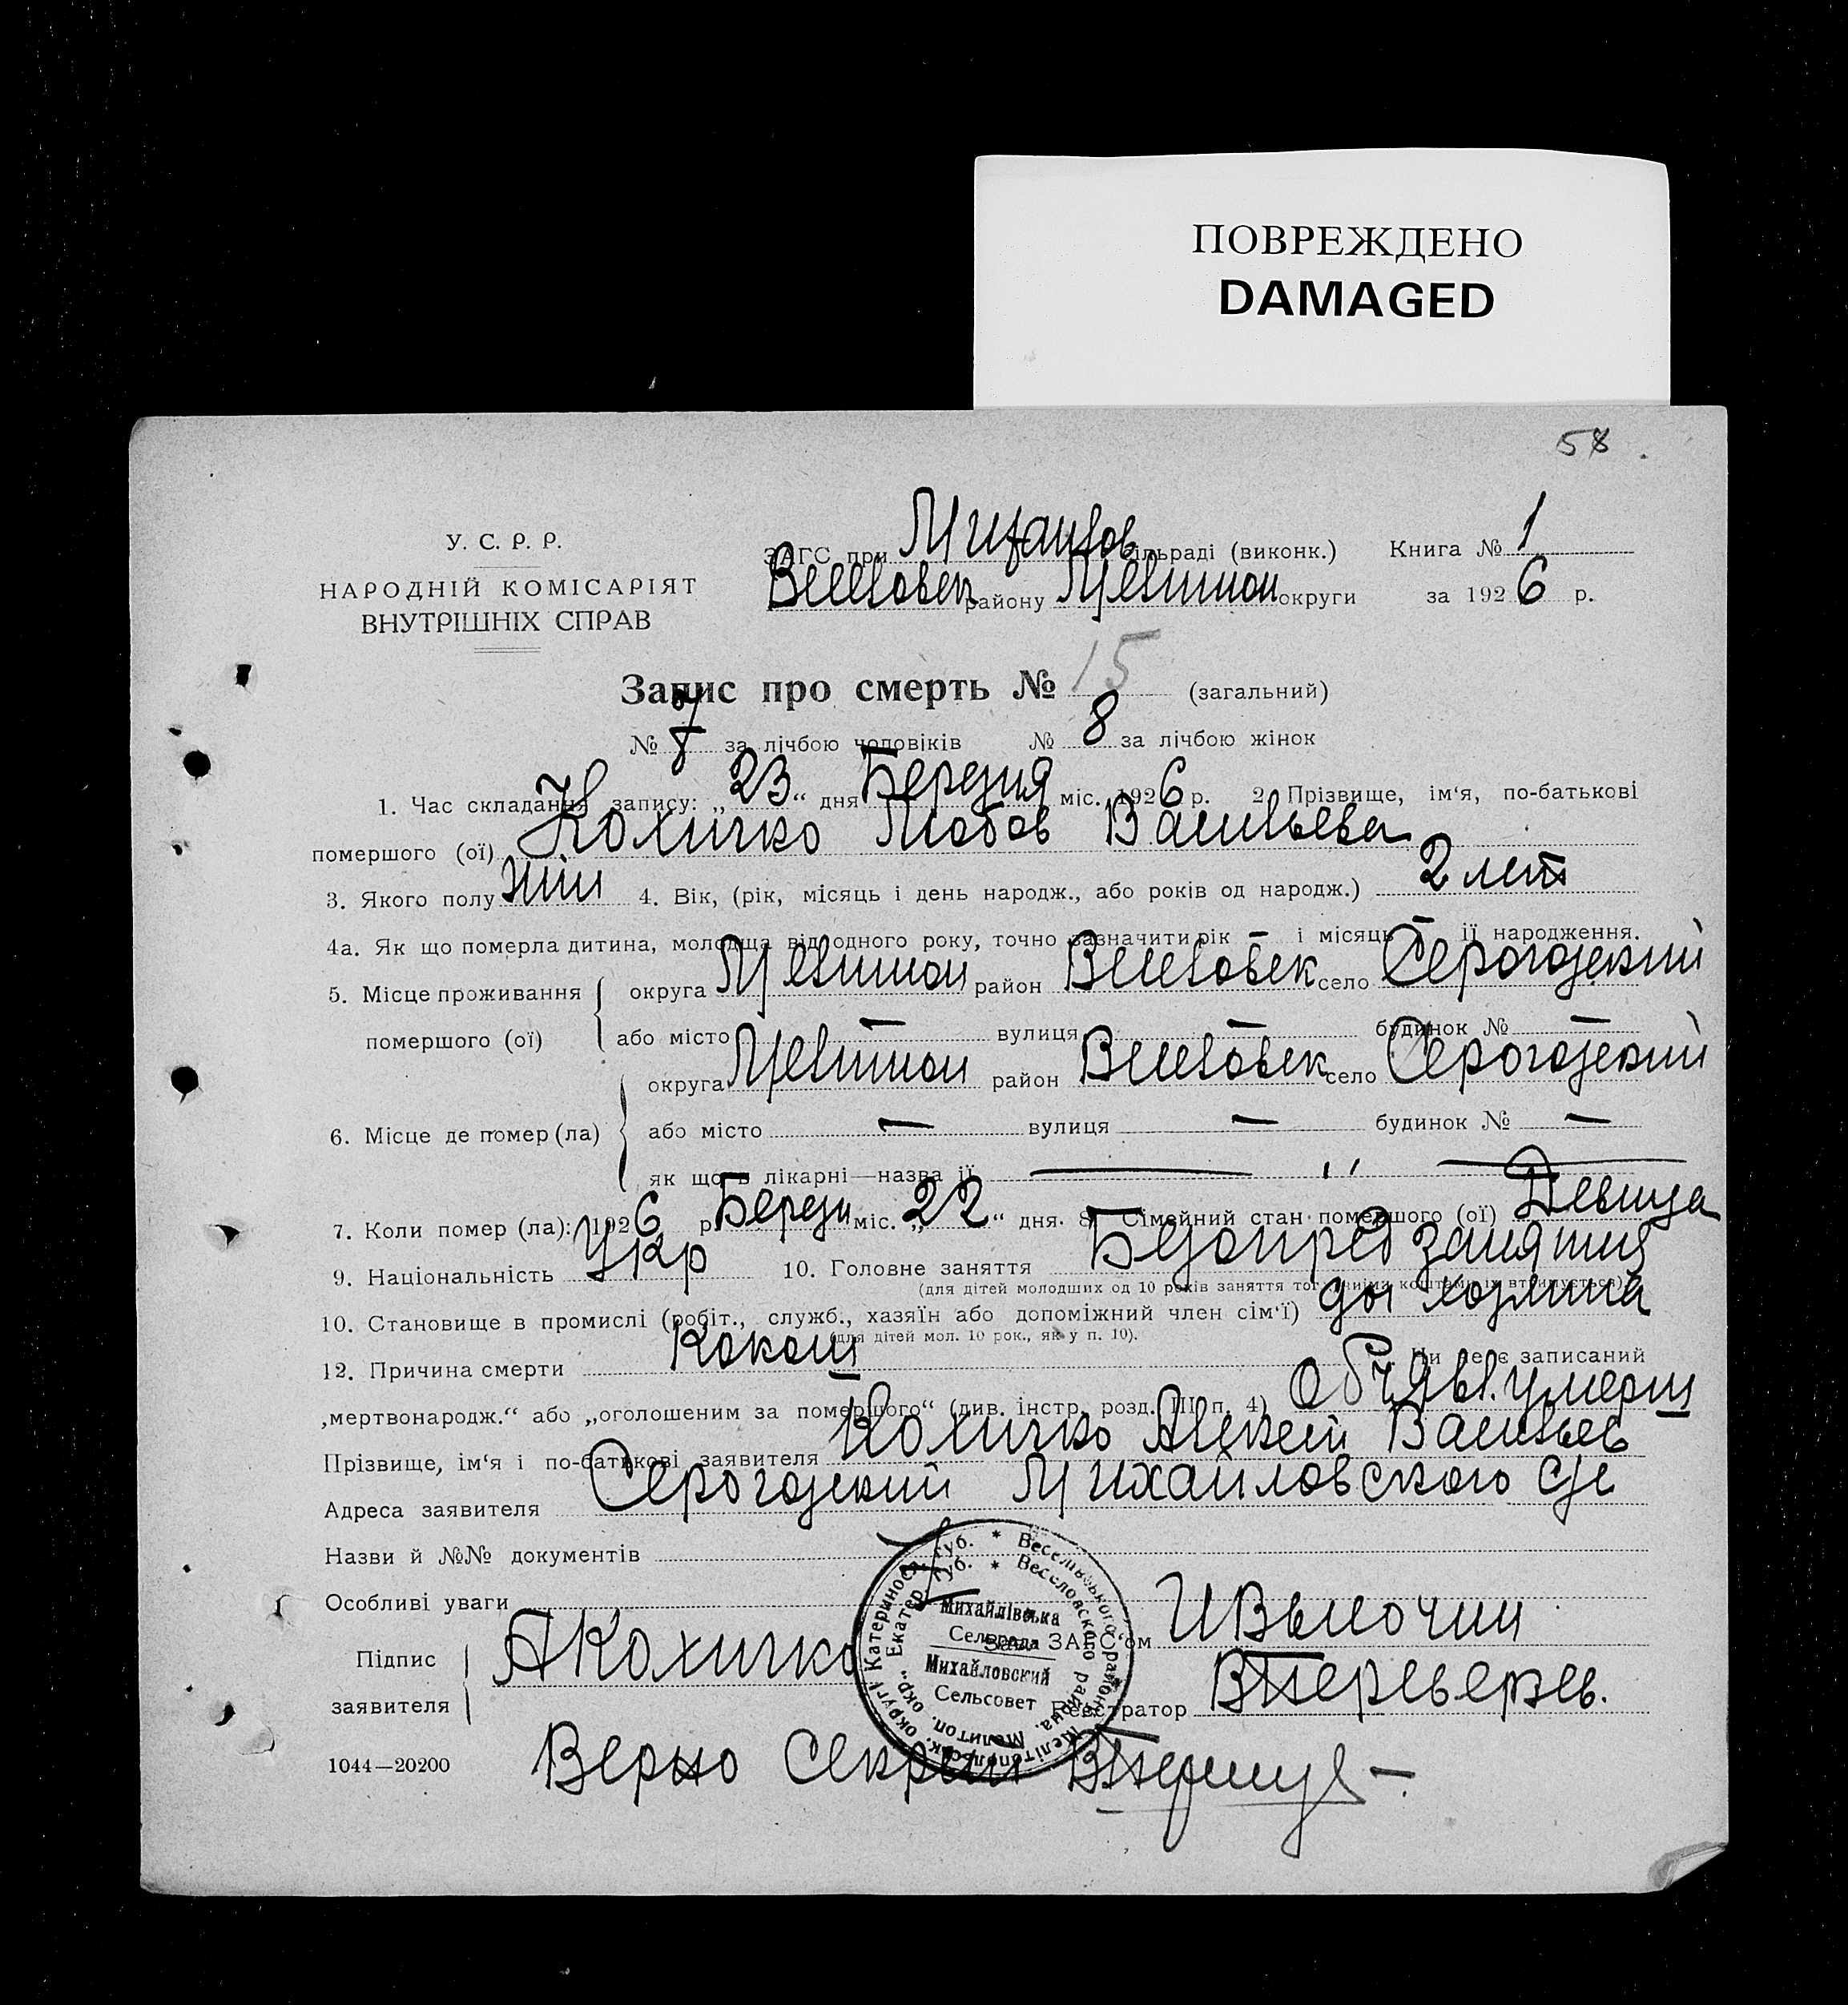 ПОВРЕЖДЕНО
DAMAGED
58
У. С. Р. Р.
НАРОДНІЙ КОМІСАРІЯТ
ВНУТРІШНІХ СПРАВ
ЗАГС при Михайлов сільраді (виконк.) Книга № 1
Веселовск району Мелитоп округи за 1926 р.
Запис про смерть № 15 (загальний)
№ за лічбою чоловіків № 8 за лічбою жінок
1. Час складання запису: „23“ дня Березня міс. 1926 р. 2. Прізвище, ім‘я, по-батькові
помершого (ої) Количко Любов Васильева
3. Якого полу жін 4. Вік, (рік, місяць і день народж., або років од народж.) 2 лет
4а. Як що померла дитина, молодща від одного року, точно зазначити рік — і місяць — її народження.
5. Місце проживання помершого (ої) округа Мелитоп район Веселовск село Серогозский
або місто — вулиця — будинок № —
6. Місце де помер (ла) округа Мелитоп район Веселовск село Серогозский
або місто — вулиця — будинок № —
як що в лікарні—назва її — „ —
7. Коли помер (ла): 1926 р Березн міс. „22“ дня. 8. Сімейний стан помершого (ої) Девица
9. Національність Укр 10. Головне заняття занятия
(для дітей молодших од 10 років заняття того, чиїми коштами їх втримується)
10. Становище в промислі (робіт., служб., хазяїн або допоміжний член сім‘ї) хозяина
(для дітей мол. 10 рок., як у п. 10).
12. Причина смерти Коклюш Чи не є записаний
„мертвонародж.“ або „оголошеним за помершого“ (див. інстр. розд. III п. 4) умерш
Прізвище, ім‘я і по-батькові заявителя Количко Алексей Васильев
Адреса заявителя Серогозский Михайловского с/с
Назви й №№ документів
Особливі уваги
Підпис заявителя АКоличко
Зав. ЗАГС‘ом
Реєстратор
Михайлівська
Сельрада
Михайловский
Сельсовет
1044—20200 Верно Секрет